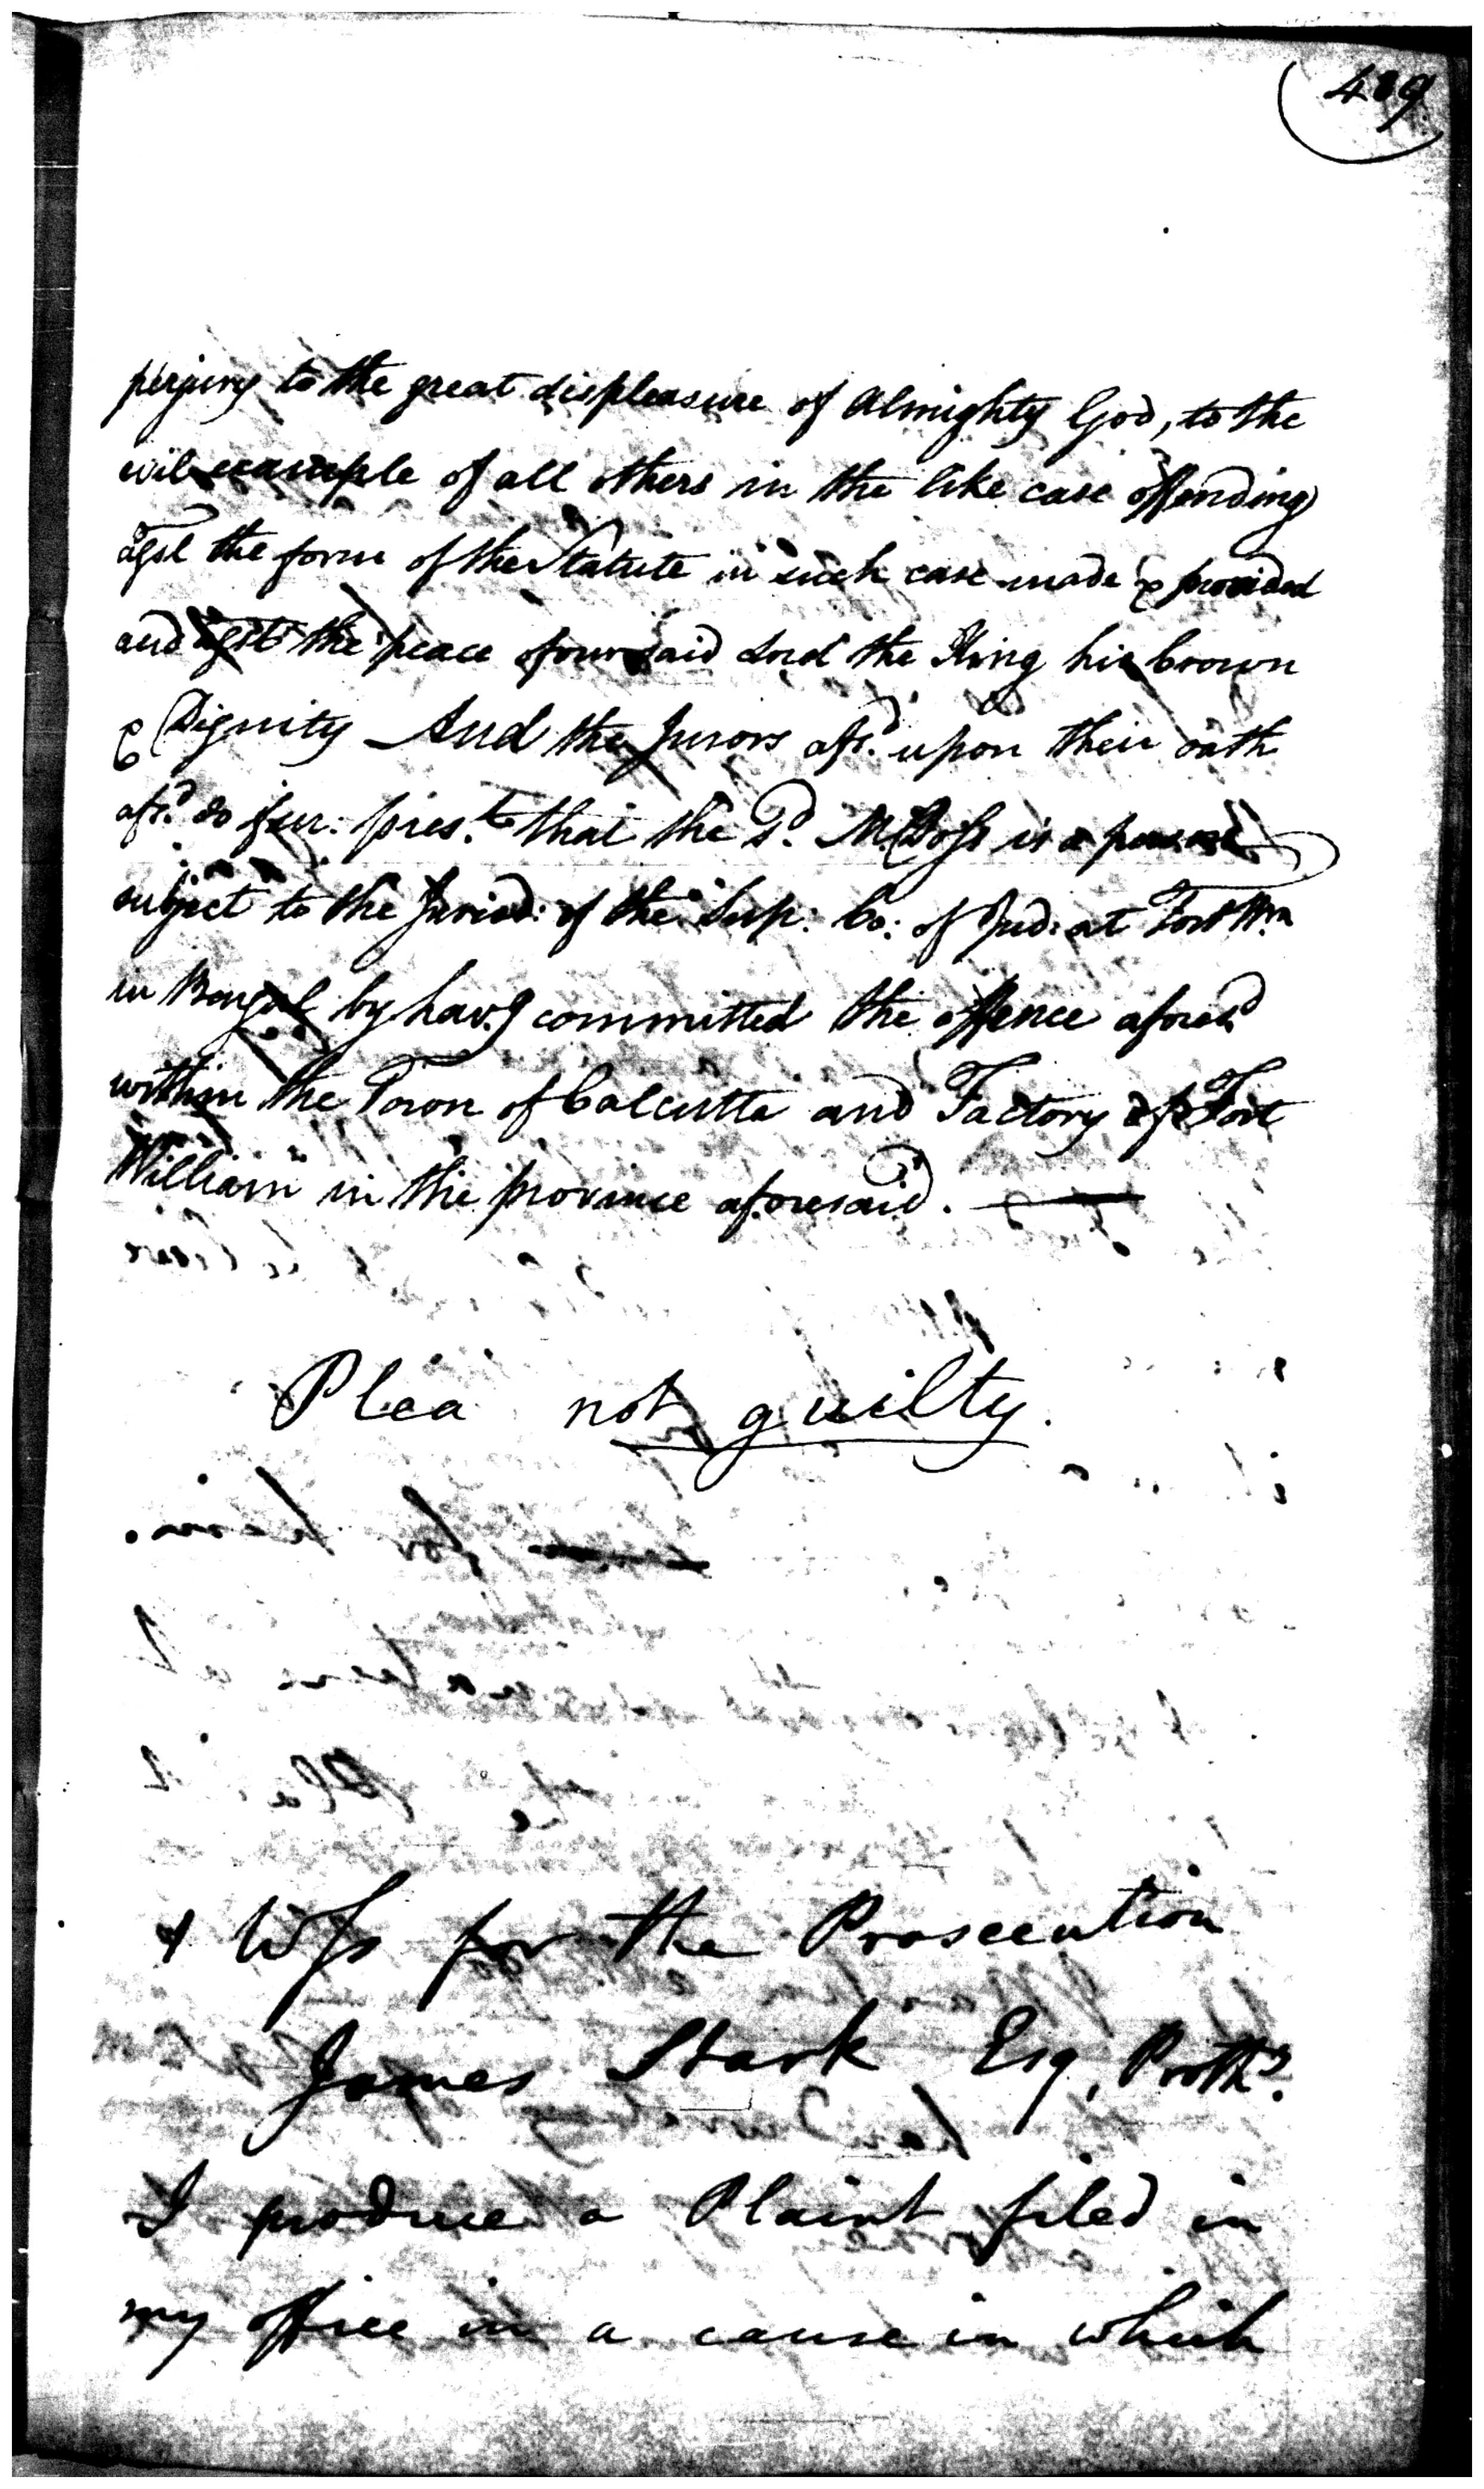 perjury to the great displeasure of Almighty God, to the
evil example of all others in the like case offending
agst the form of the Statute in such case made & provided
and agst the peace of our said Lord the King his Crown
& Dignity And the Jurors afsd. upon their oath
afsd. do fur: prest. that the sd. M Doss is a person
subject to the Jurisd: of the Sup: Co: of Jud: at Fort Wm
in Bengal by havg committed the offence aforesd
within the Town of Calcutta and Factory of Fort
William in the province aforesaid.
Plea not guilty.
Wss for the Prosecution
James Stark Esq, Prothy.
I produce a Plaint filed in
my office in a cause in which